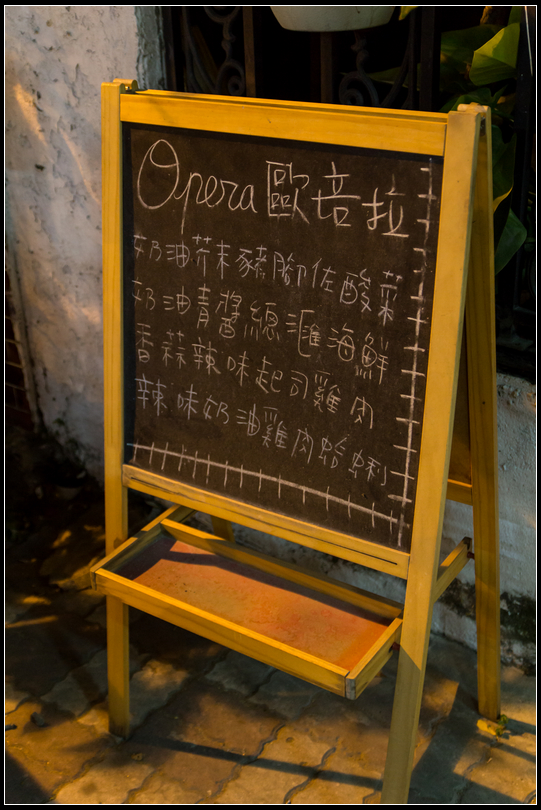 Opera 歐培拉
奶油芥末豬腳佐酸菜
奶油青醬總滙海鮮
香蒜辣味起司雞肉
辣味奶油雞肉蛤蜊